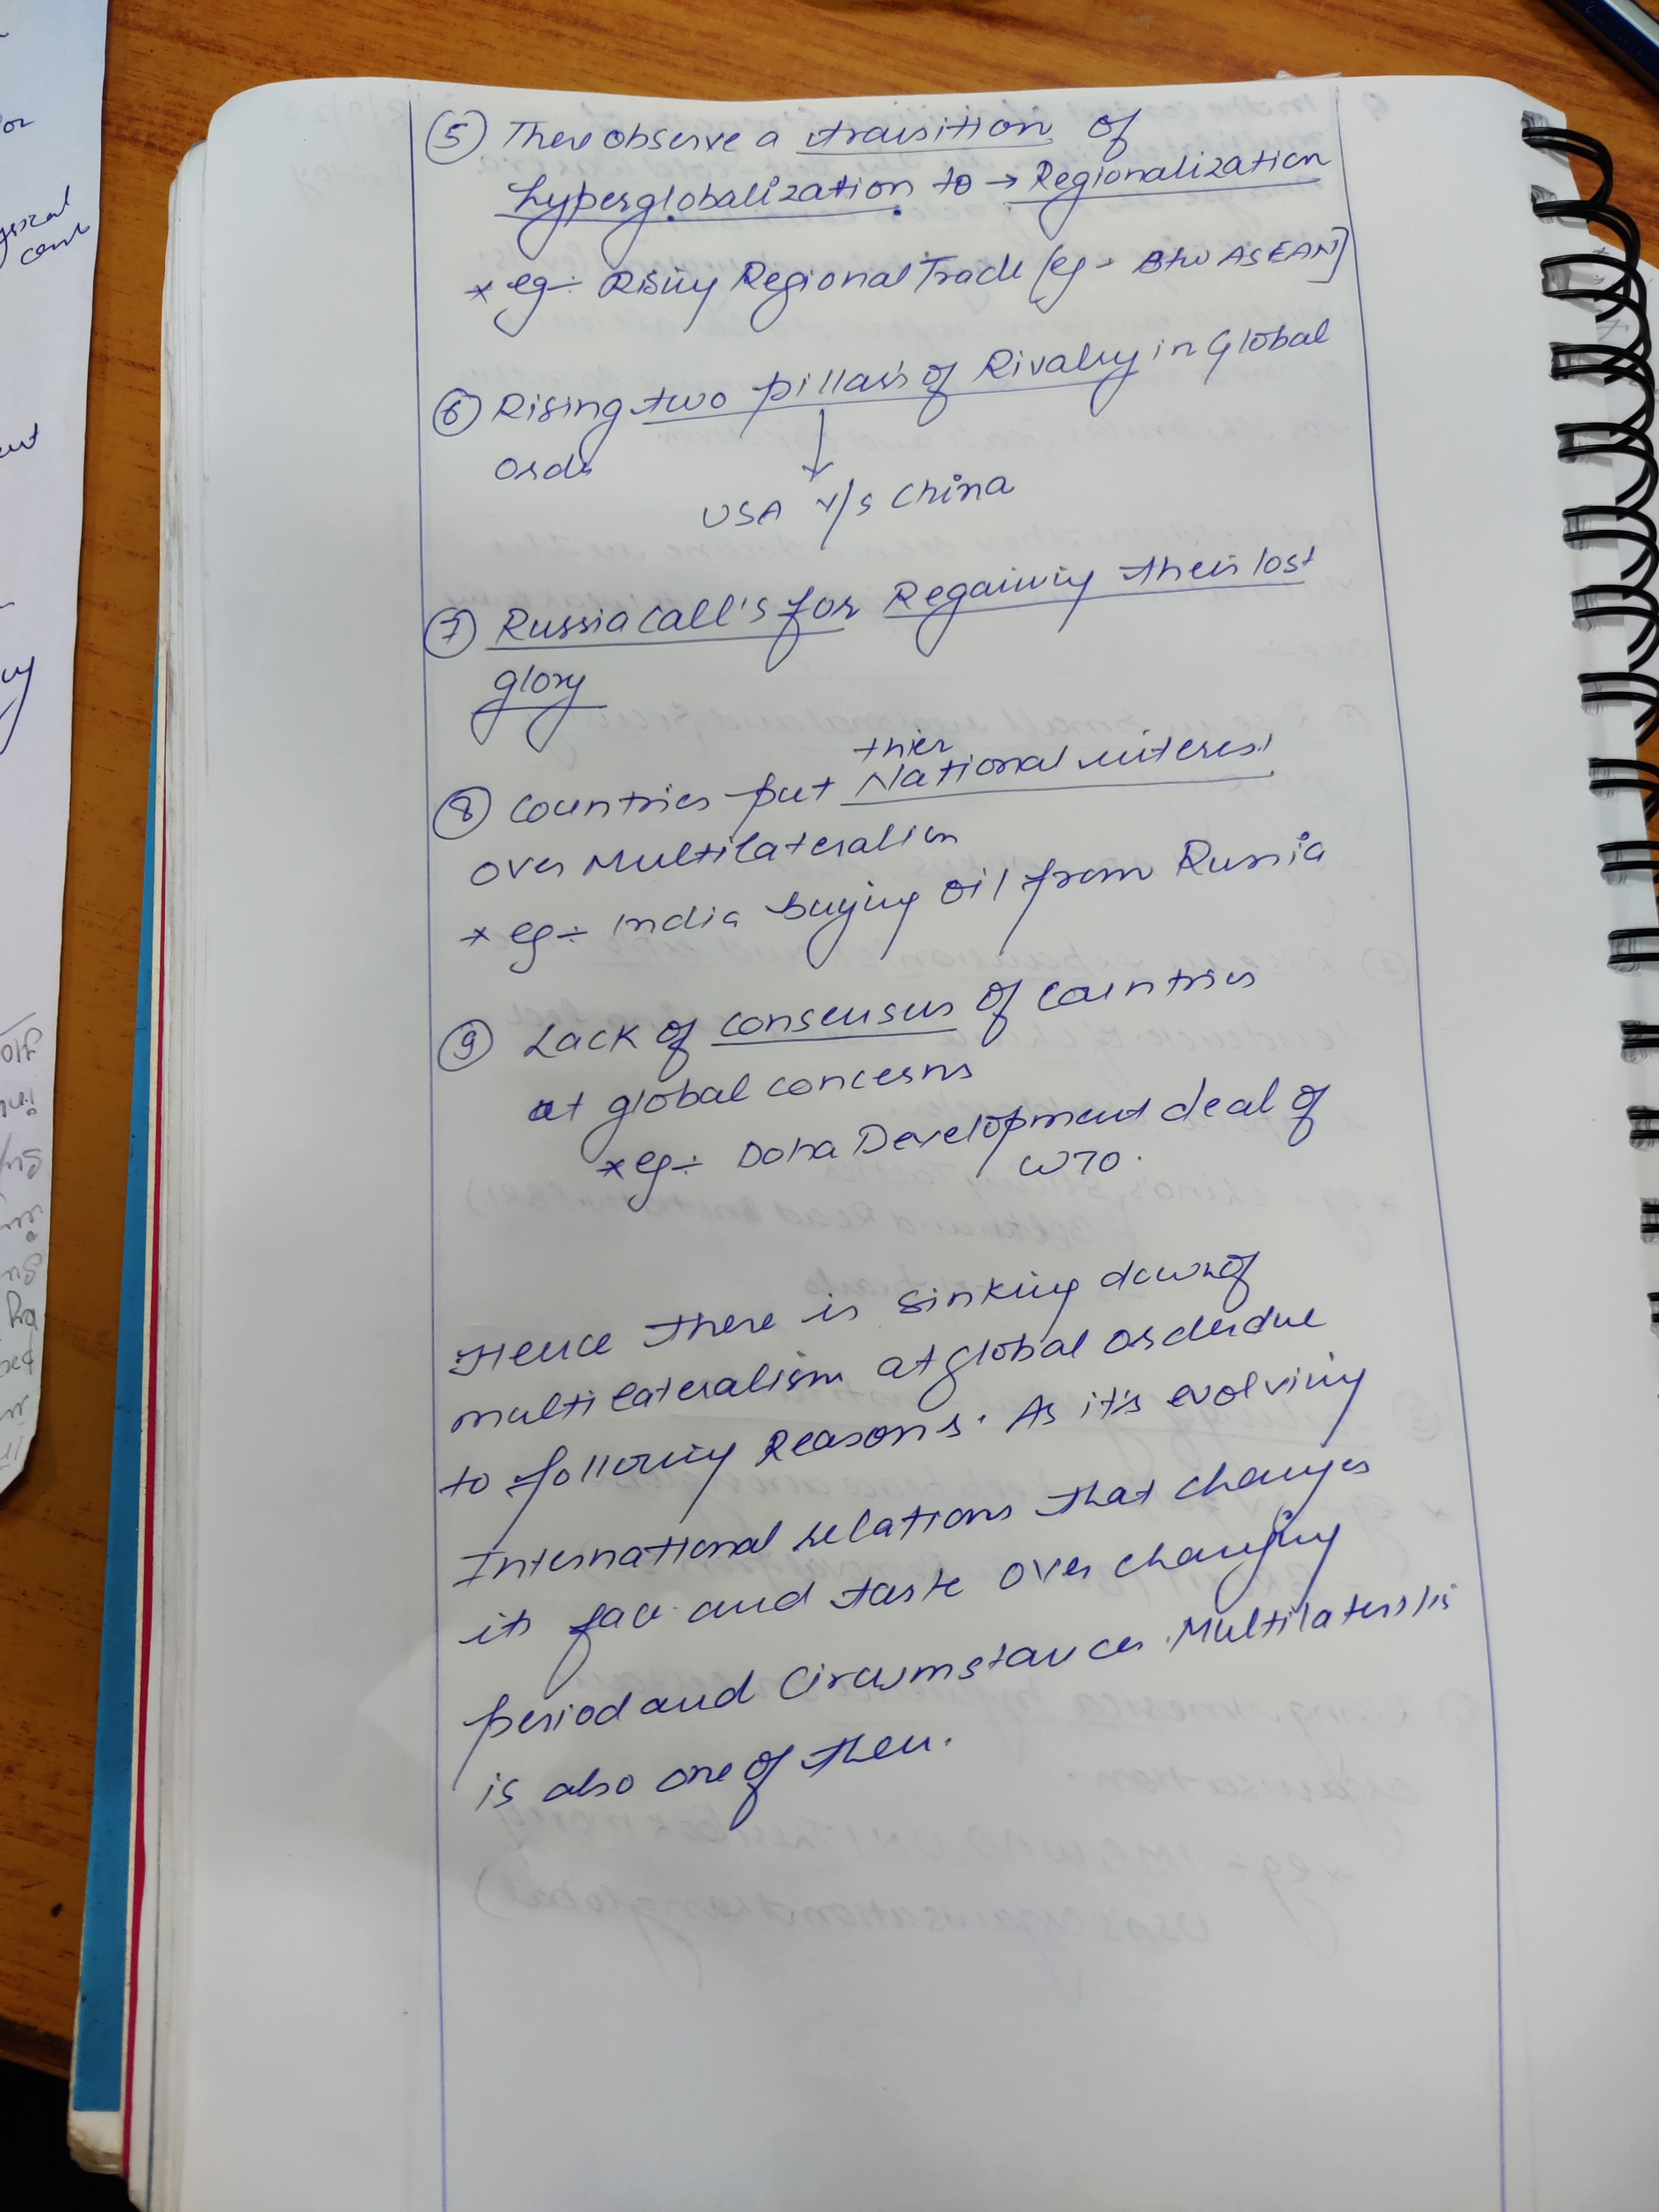 ⑤ There observe a transition of
hyperglobalization to → Regionalization
* eg ÷ Rising Regional Trade [eg - Btw ASEAN]
⑥ Rising two pillars of Rivalry in Global
Order
↓
USA v/s China
⑦ Russia Call's for Regaining their lost
glory
thier
⑧ Countries put National interest
over Multilateralism
* eg ÷ India buying oil from Russia
⑨ Lack of consensus of countries
at global concerns
* eg ÷ Doha Development deal of
WTO.
Hence there is sinking down of
multilateralism at global order due
to following Reasons. As it's evolving
International relations that changes
its face and taste over changing
period and Circumstances. Multilateralis
is also one of them.